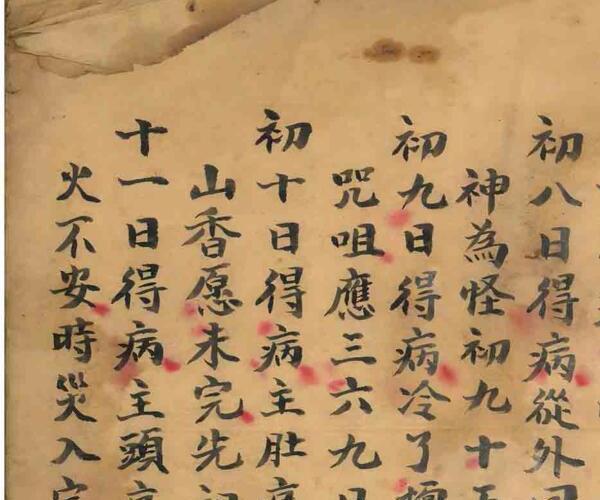 初八日得病從外
神為怪初九十
初九日得病冷了
咒咀應三六九日
初十日得病主肚
山香愿未完先
十一日得病主頭
火不安時災入